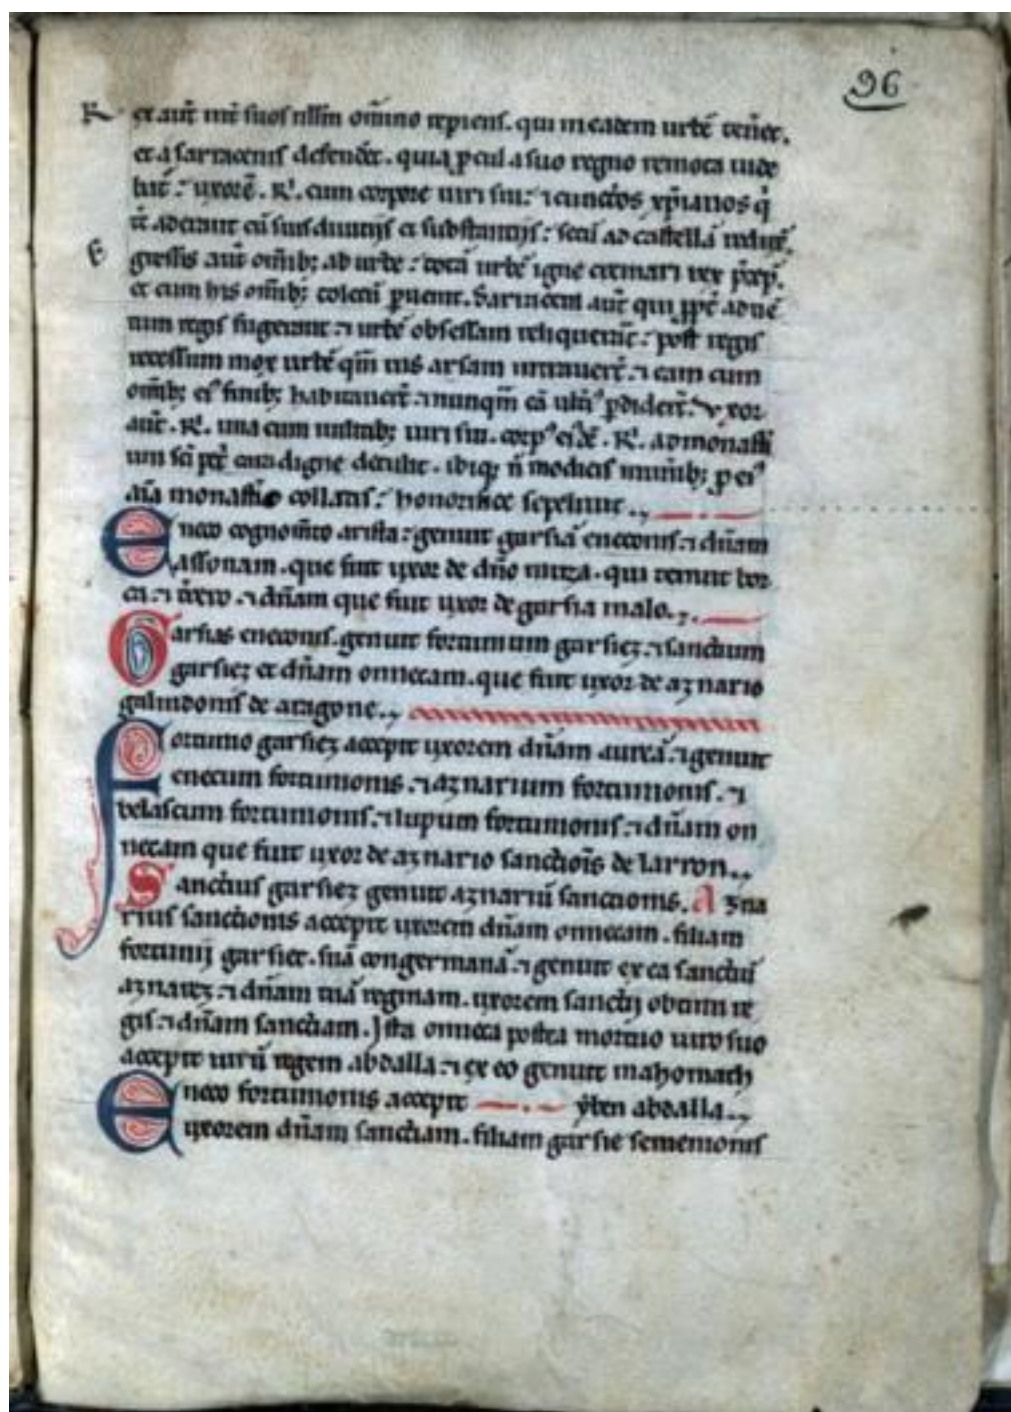 96
R ex aut̄ int̄ suos nllm̄ om̄ino repiens. qui in eadem urbē ten̄et.
et a sarracenis defend̄et. quia ꝓcul a suo regno remota uide
bat᷑: uxorē. R͛. cum corpore uiri sui: ⁊ cunctos xp̄ianos q̄
t̄t aderant cū suis diuitijs et substantijs: secū ad castellā reduẍ.
E gressis aut̄ om̄ib; ab urbe: totā urbē igne cremari rex p̄cep̄.
et cum his om̄ib; toletū ꝑuenit. Sarraceni aut̄ qui ꝓpt̄ aduē
tum regis fugerant ⁊ urbē obsessam reliquerāt: post regis
recessum mox urbē qm̄uis arsam intrauer̄t. ⁊ eam cum
om̄ib; ei᷒ finib; habitauer̄t. ⁊ nunqm̄ eā ult̄i᷒ ꝑdider̄t. Vxor
aut̄. R͛. una cum militib; uiri sui. corp᷒ ei᷒dē. R͛. ad monast̄i
um sc̄i pet̄ caradigne detulit. ibiq; n̄ modicis mun̄ib; ꝓ ei᷒
aīa monast̄io collatis: honorifice sepeliuit.,
Eneco cognom̄to arista: genuit garsiā eneconis. ⁊ dn̄am
assonam. que fuit uxor de dn̄o muza. qui tenuit bor
ca. ⁊ t̄rero. ⁊ dn̄am que fuit uxor de garsia malo.,.
Garsias eneconis. genuit fortunium garsiez. ⁊ sanctium
garsiez et dn̄am onnecam. que fuit uxor de aznario
galindonis de aragone.,
Fortunio garsiez accepit uxorem dn̄am aureā. ⁊ genuit
enecum fortunionis. ⁊ aznarium fortunionis. ⁊
belascum fortunionis. ⁊ lupum fortunionis. ⁊ dn̄am on
necam que fuit uxor de aznario sanctiōis de larron.,
Sanctius garsiez genuit aznariū sanctionis. Azna
rius sanctionis accepit uxorem dn̄am onnecam. filiam
fortunij garsiet. suā congermanā. ⁊ genuit ex ea sanctiū
aznarez. ⁊ dn̄am tutā reginam. uxorem sanctij obtimi re
gis. ⁊ dn̄am sanctiam. Ista onneca postea mortuo uiro suo
accepit uirū regem abdalla. ⁊ ex eo genuit mahomath
Eneco fortunionis accepit ẏben abdalla.,
uxorem dn̄am sanctiam. filiam garsie semenonis